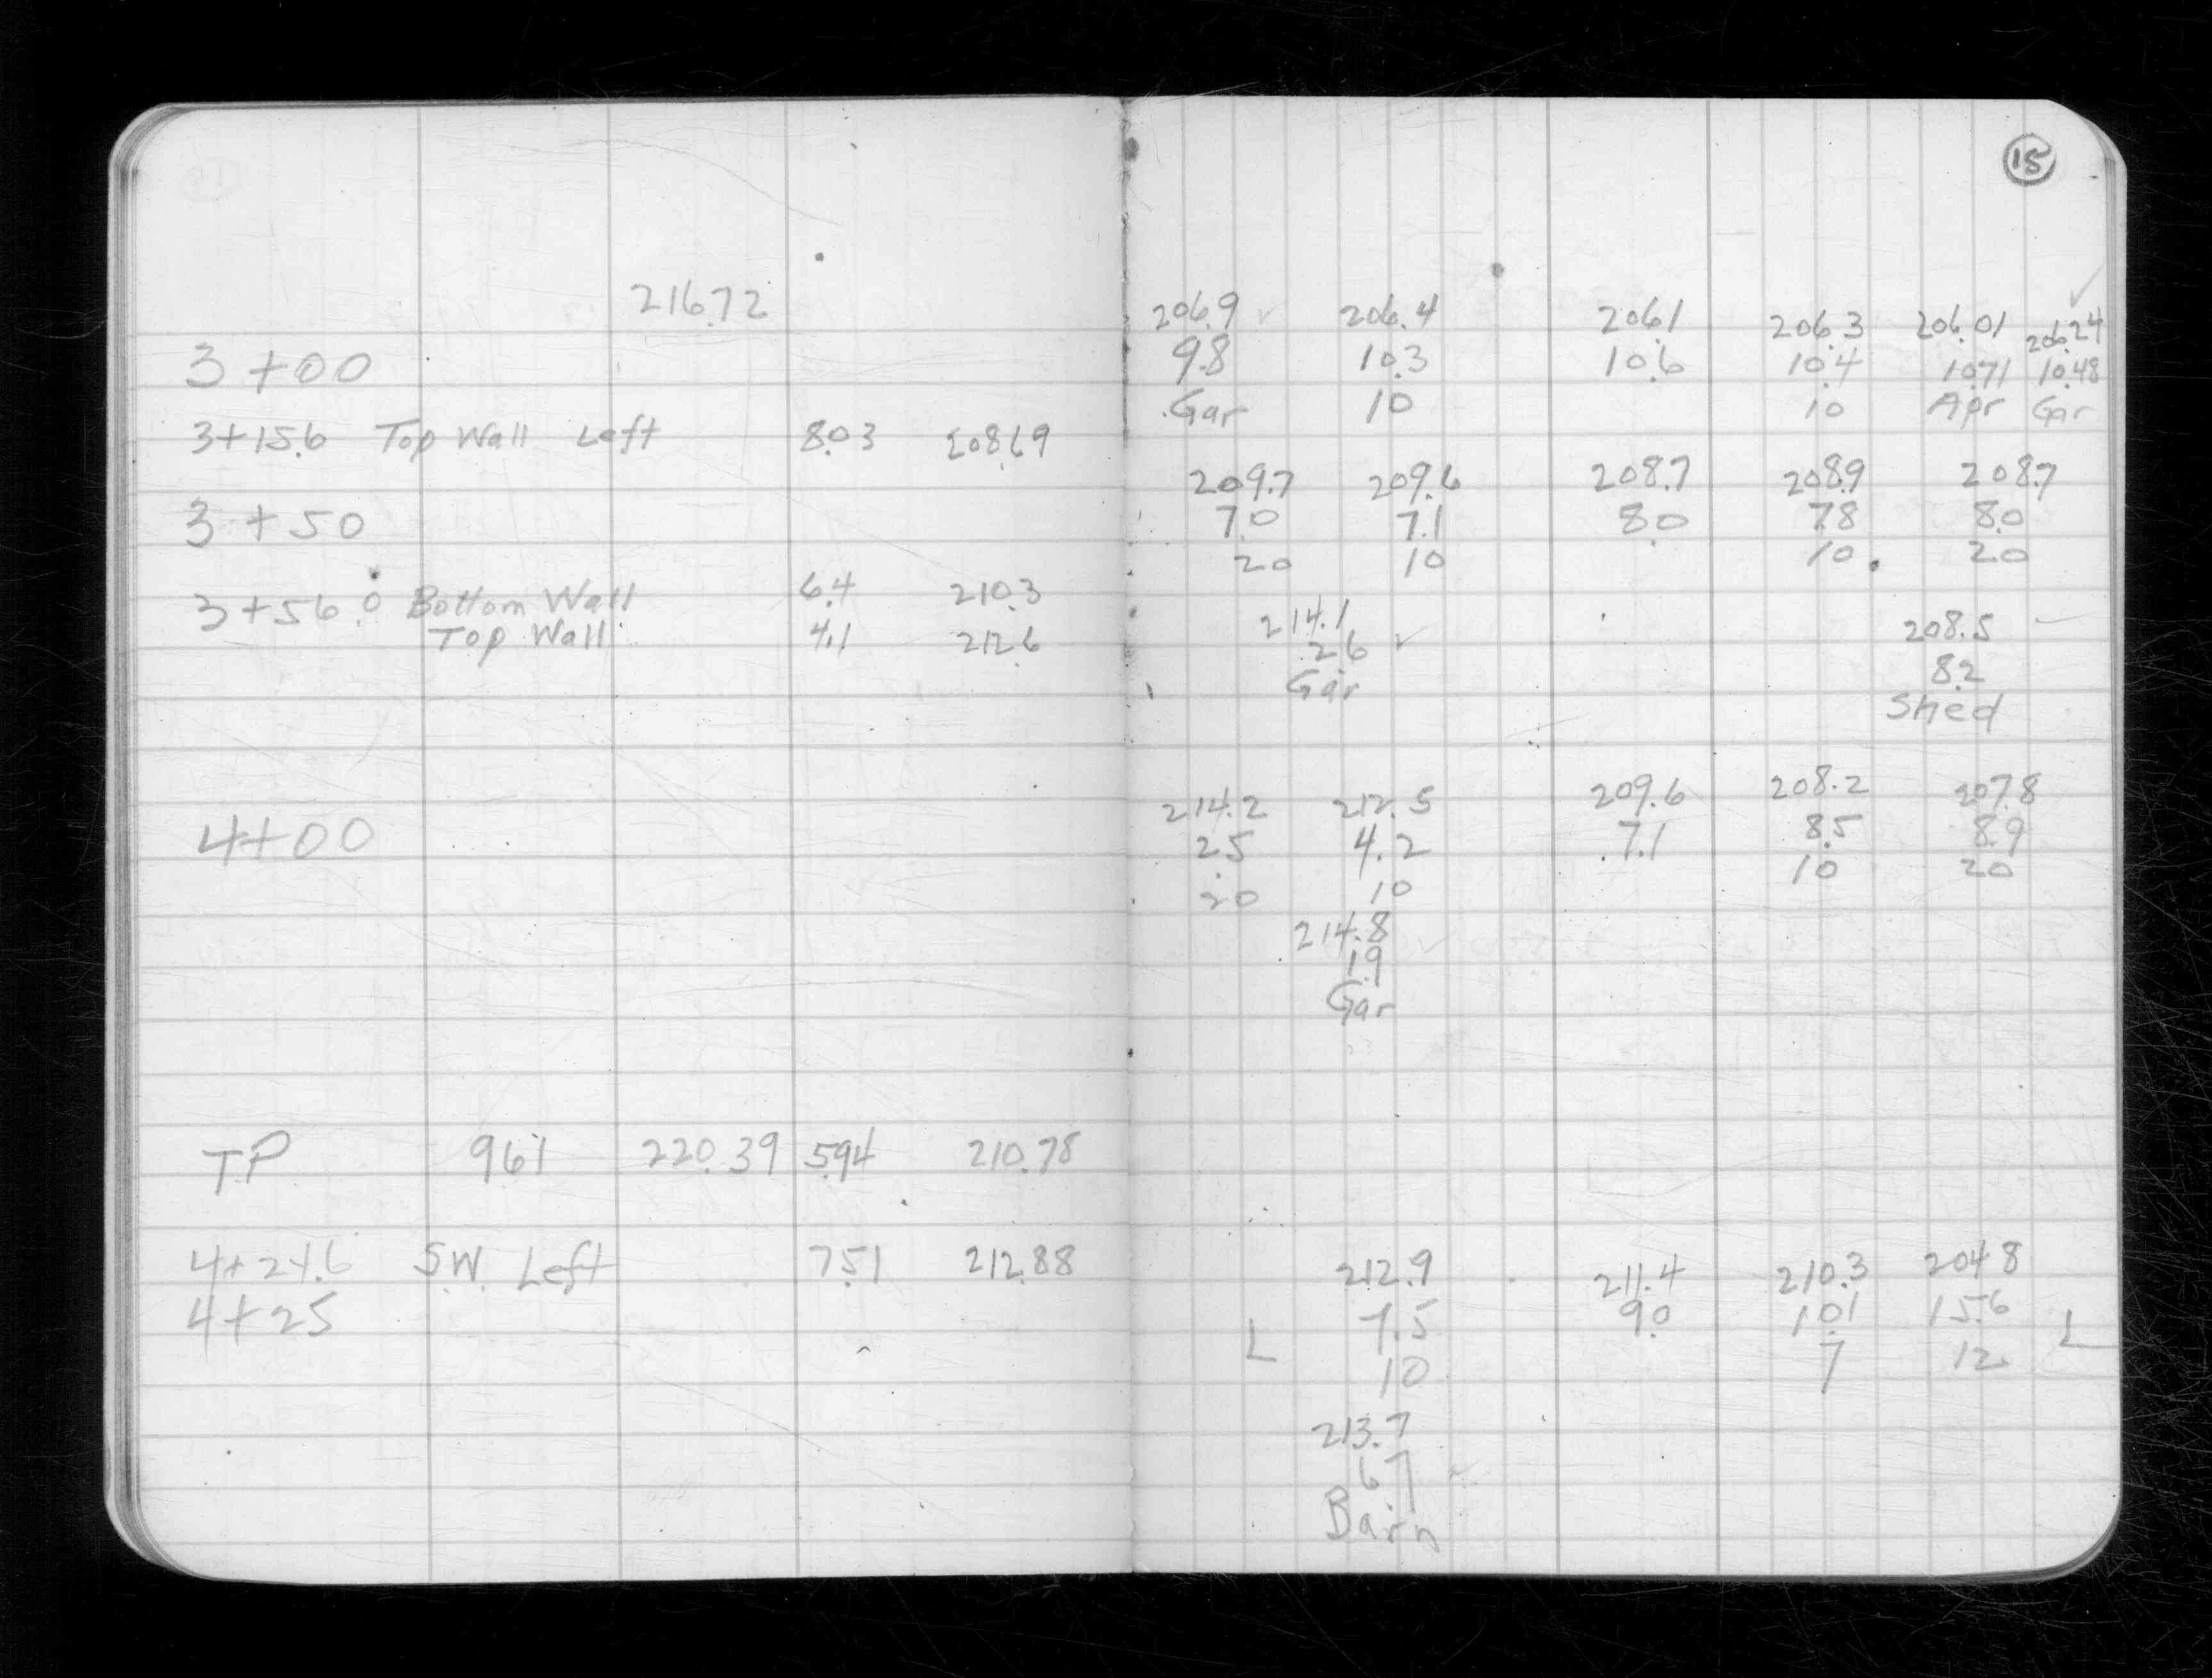 15
216.72
3+00
3+15.6 Top Wall Left 8.03 208.69
3+50
3+56.0 Bottom Wall 6.4 210.3
Top Wall 4.1 212.6
4+00
TP 9.61 220.39 5.94 210.78
S.W. Left 7.51 212.88
4+25
206.9 206.4 206.1 206.3 206.01 206.24
9.8 10.3 10.6 10.4 10.71 10.48
Gar 10 10 Apr Gar
209.7 209.6 208.7 208.9 208.7
7.0 7.1 8.0 7.8 8.0
20 10 10 20
214.1 208.5
2.6 8.2
Gar Shed
214.2 212.5 209.6 208.2 207.8
2.5 4.2 7.1 8.5 8.9
20 10 10 20
214.8
1.9
Gar
212.9 211.4 210.3 204.8
L 7.5 9.0 10.1 15.6 L
10 7 12
213.7
6.7
Barn